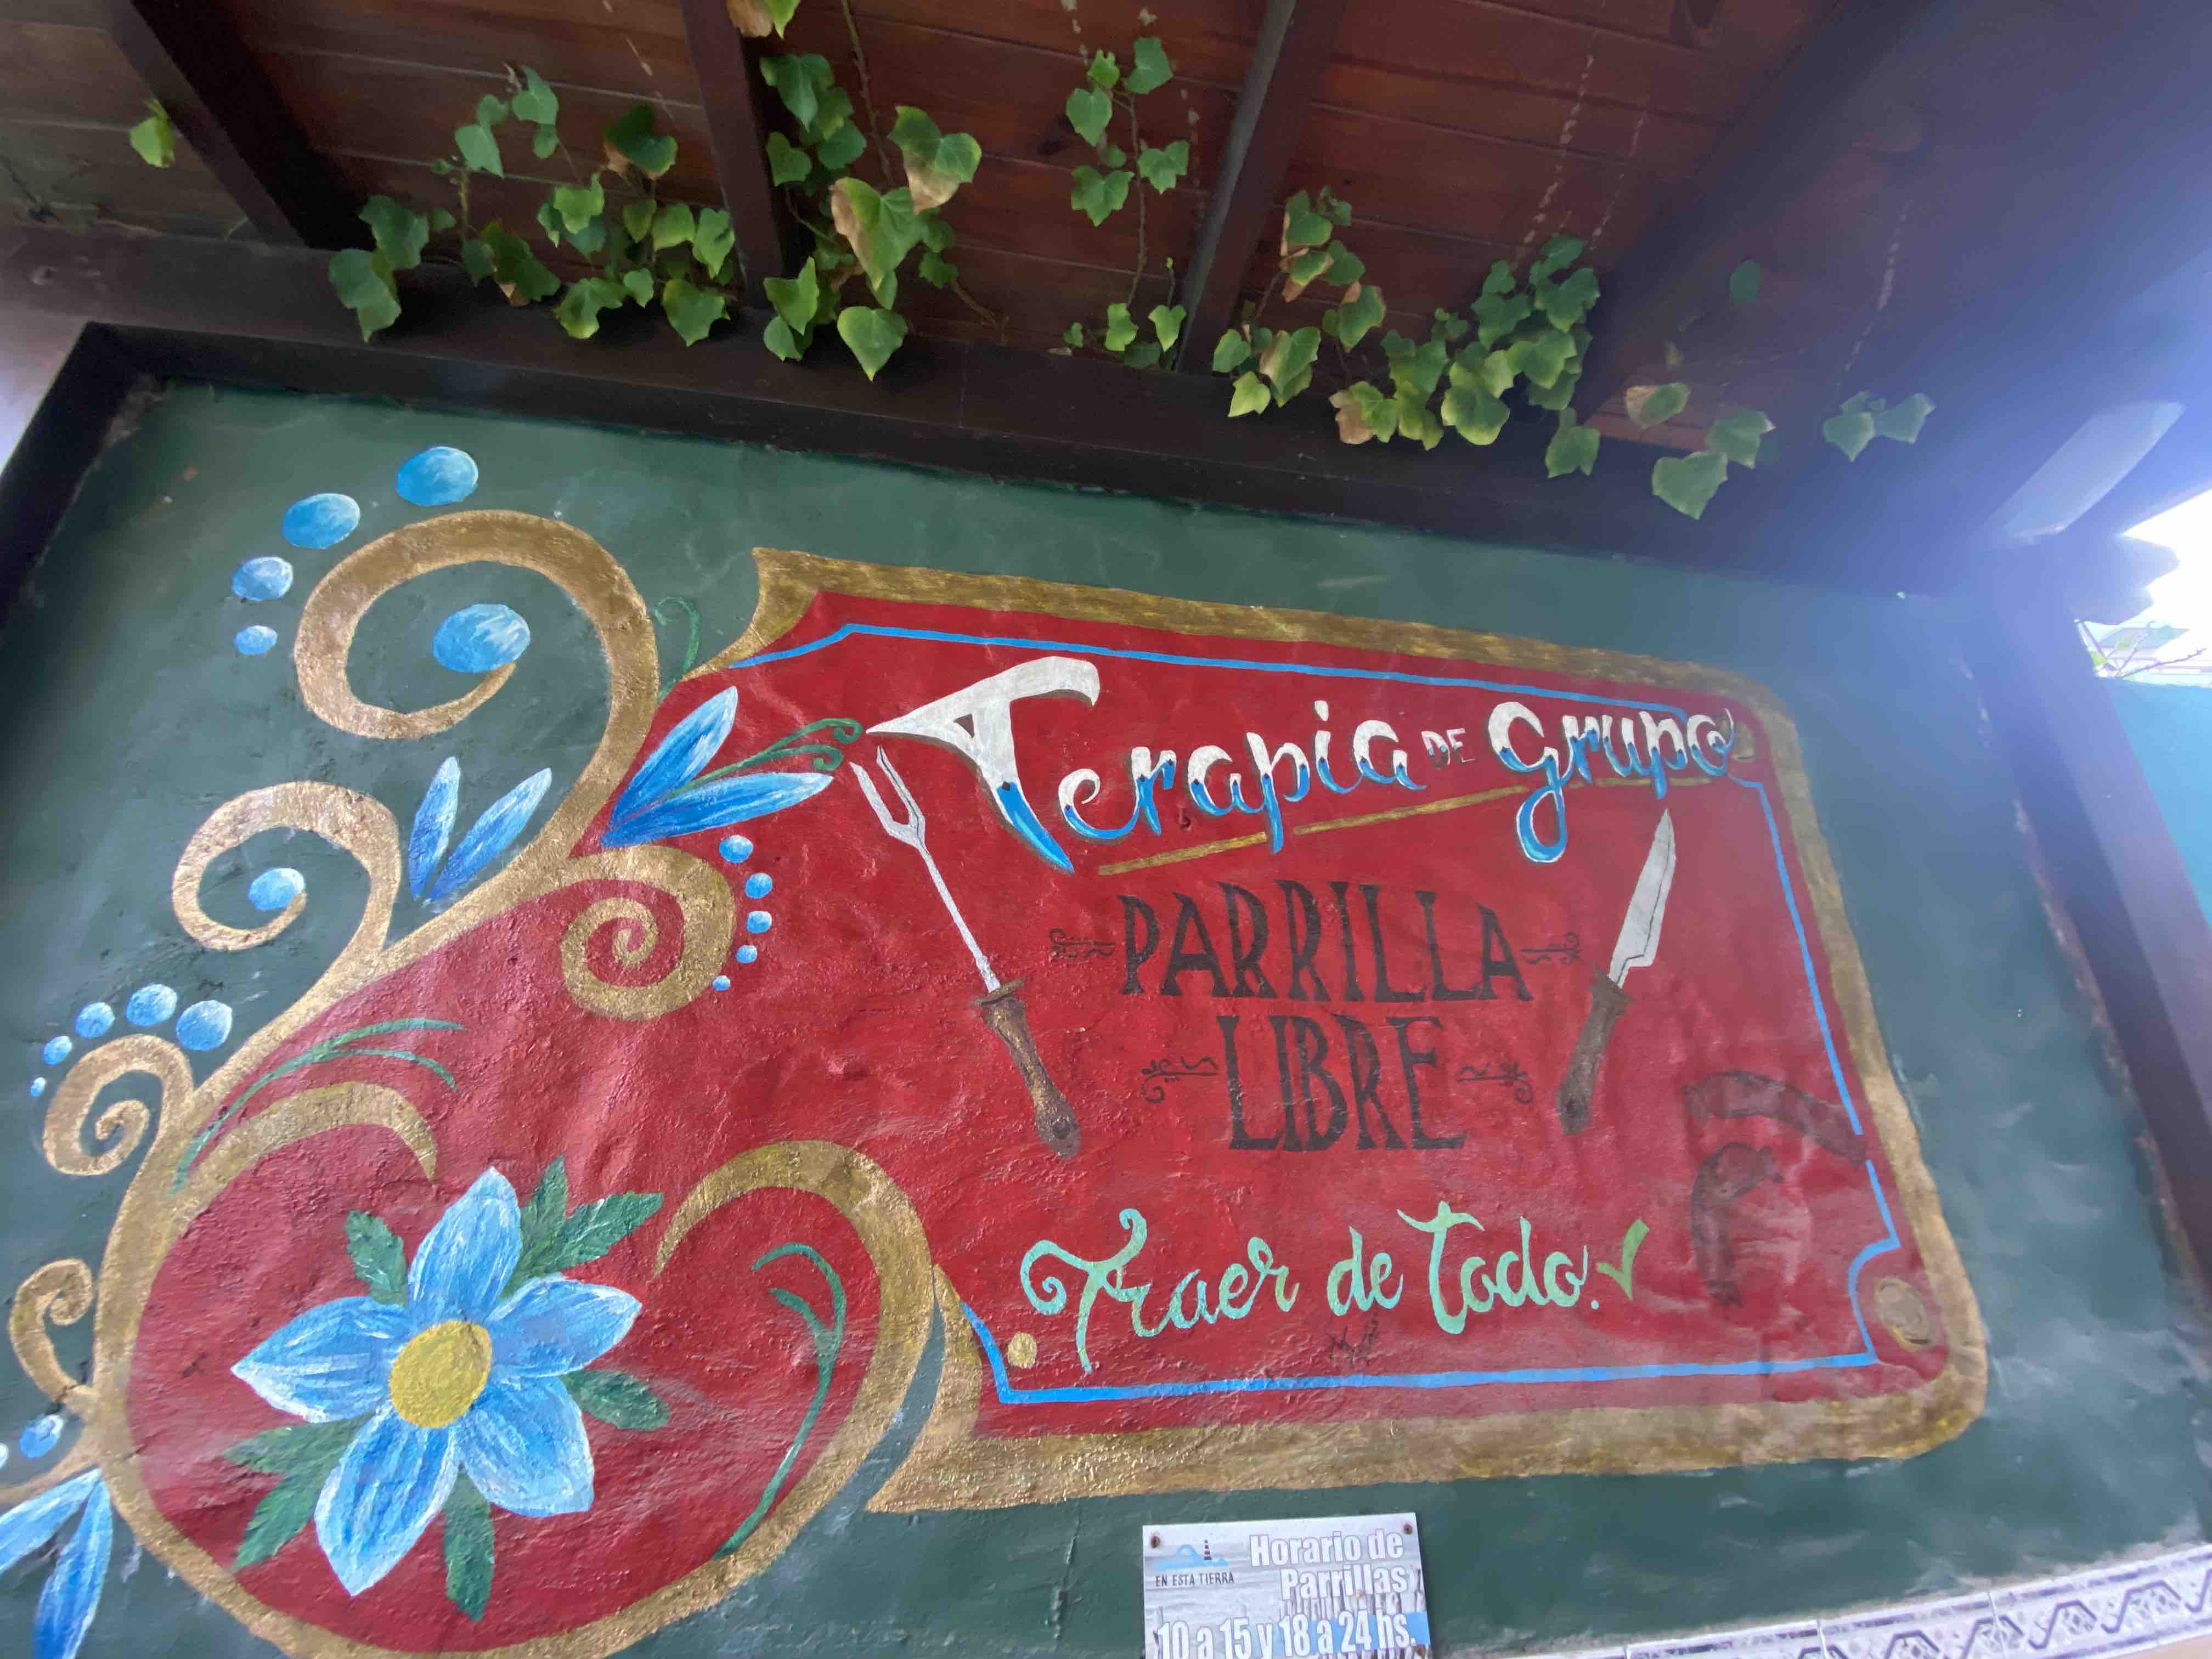 Terapia DE Grupo
PARRILLA
LIBRE
Traer de Todo.
EN ESTA TIERRA
Horario de
Parrillas
10 a 15 y 18 a 24 hs.